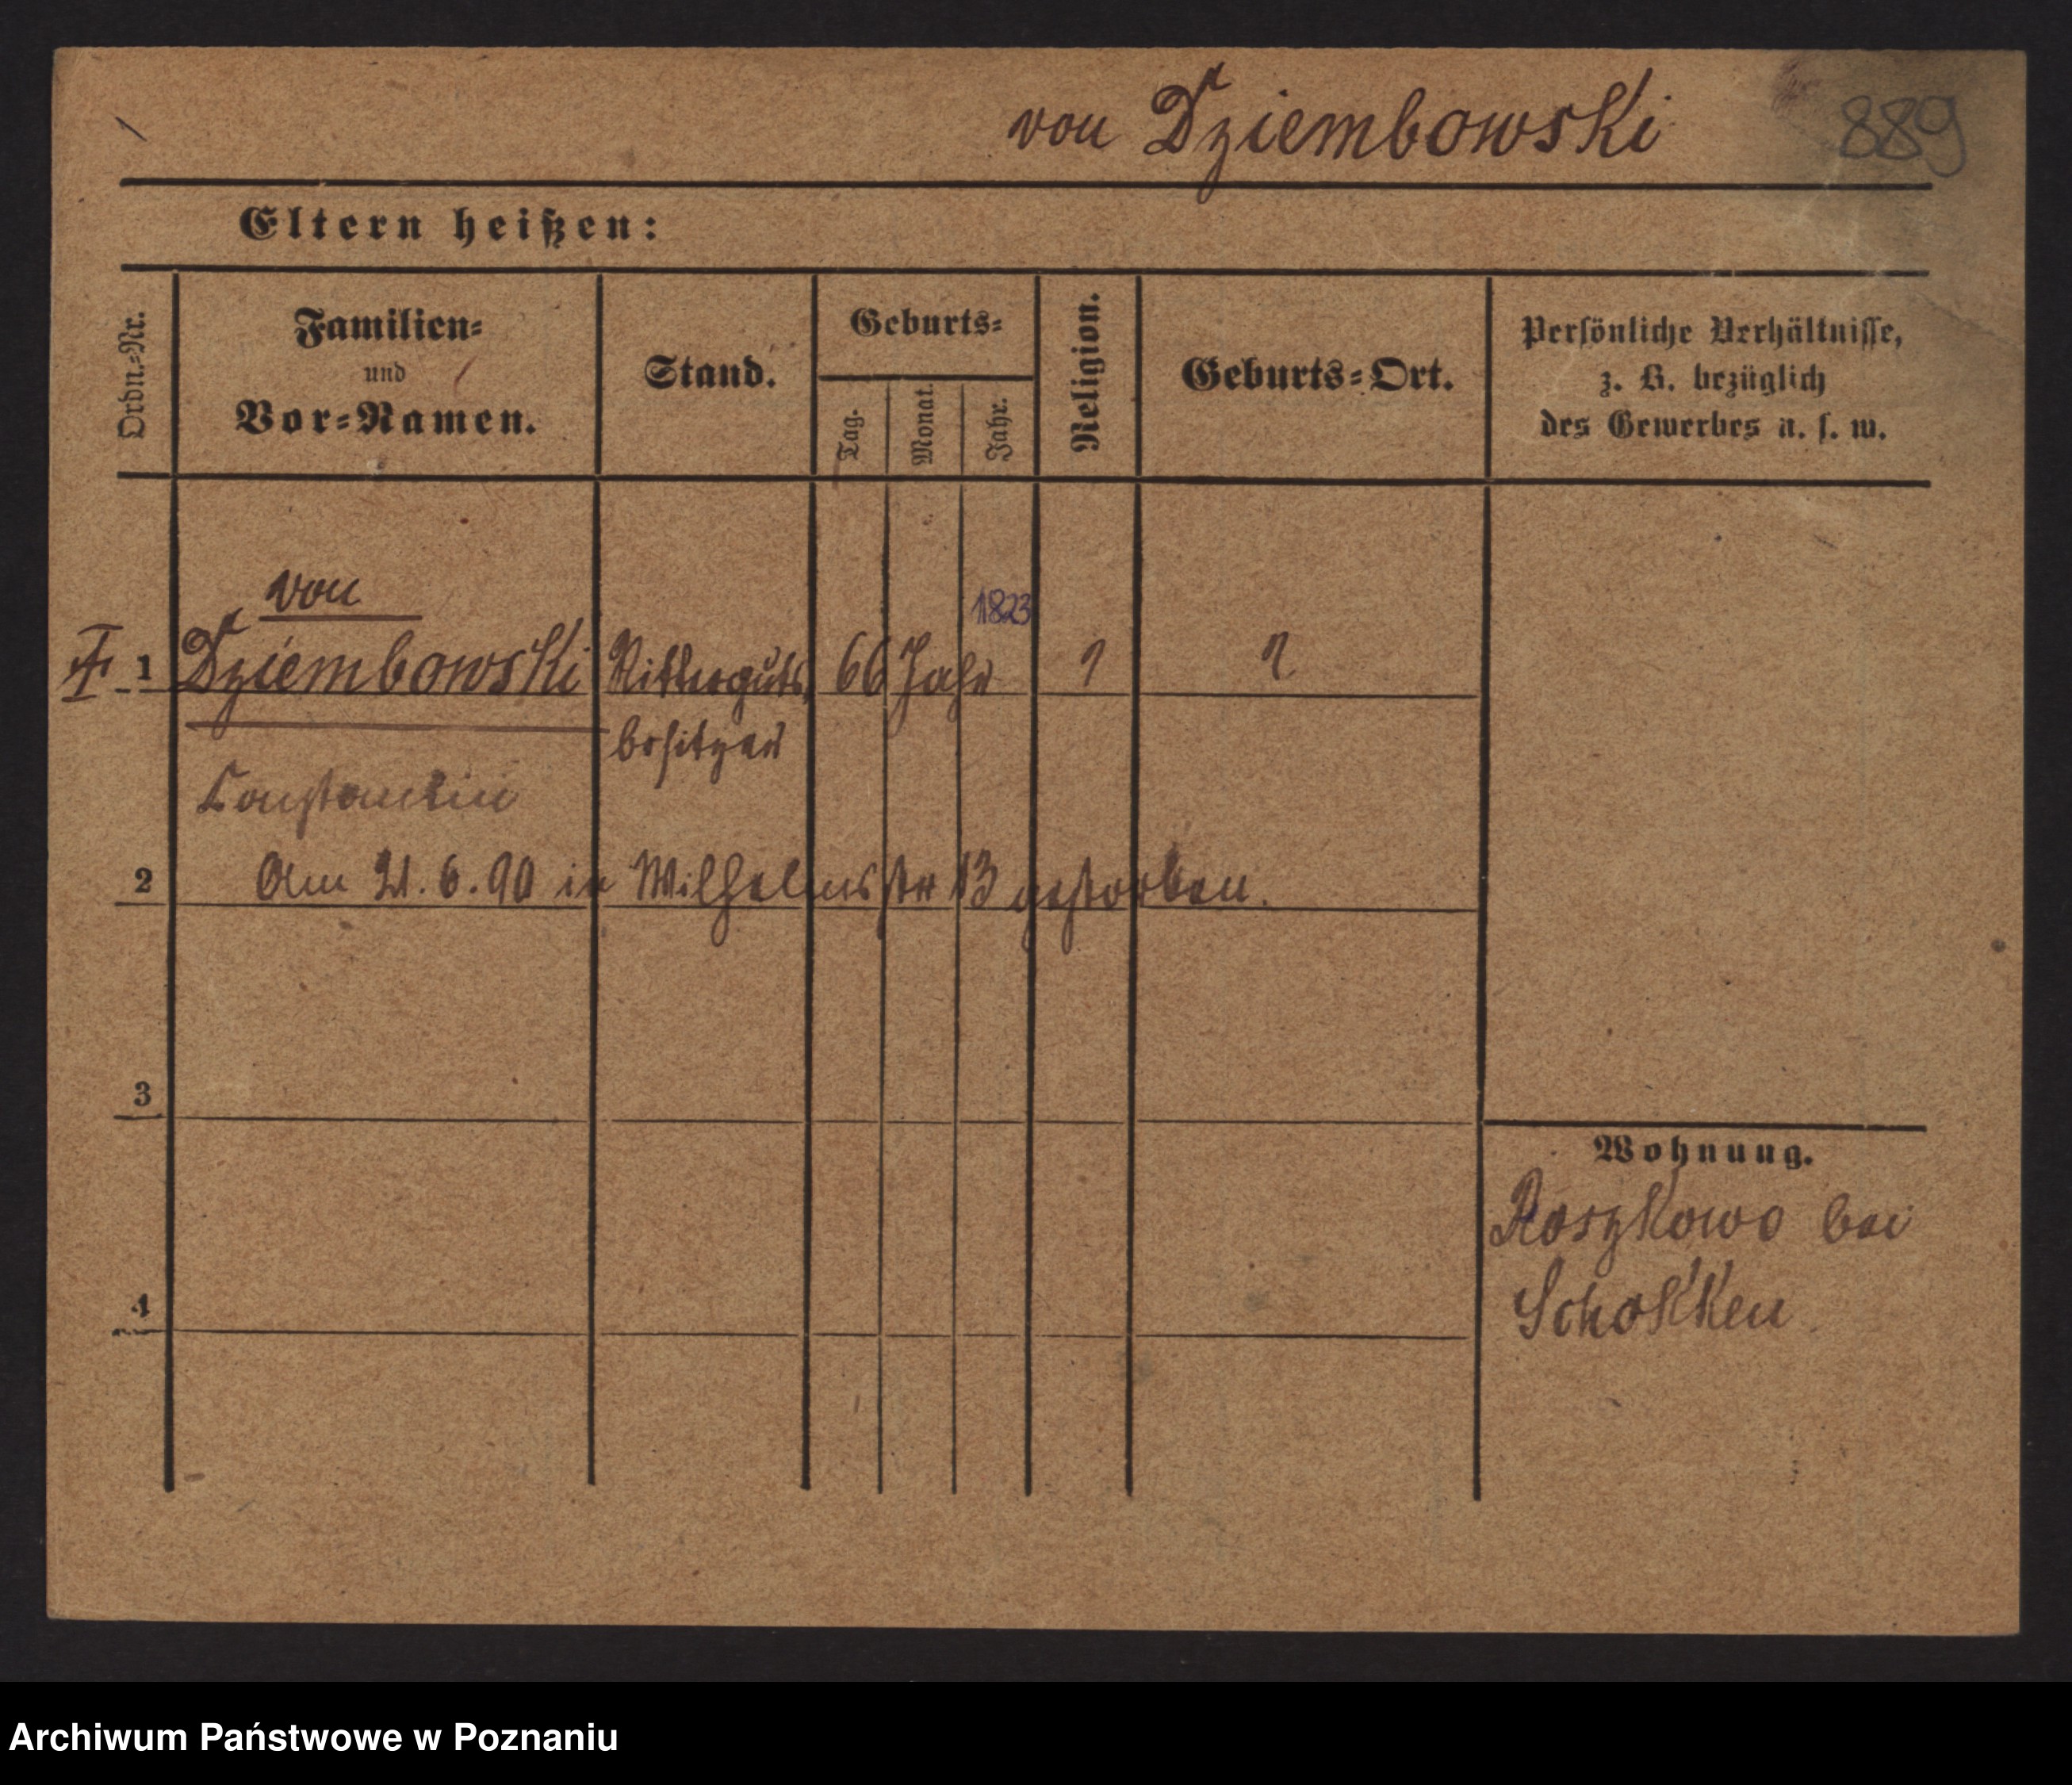 von Dziembowski 889
Eltern heißen:
Ordn.=Nr.
Familien=
und
Vor=Namen.
Stand.
Geburts=
Tag.
Monat.
Jahr.
Religion.
Geburts=Ort.
Persönliche Verhältnisse,
z. B. bezüglich
des Gewerbes u. s. w.
von
1823
1 Dziembowski Ritterguts 66 Jahr ? ?
besitzer
Constantin
2 Am 21.6.90 in Wilhelmsstr 13 gestorben.
3
Wohnung.
Roszkowo bei
4 Schokken
Archiwum Państwowe w Poznaniu